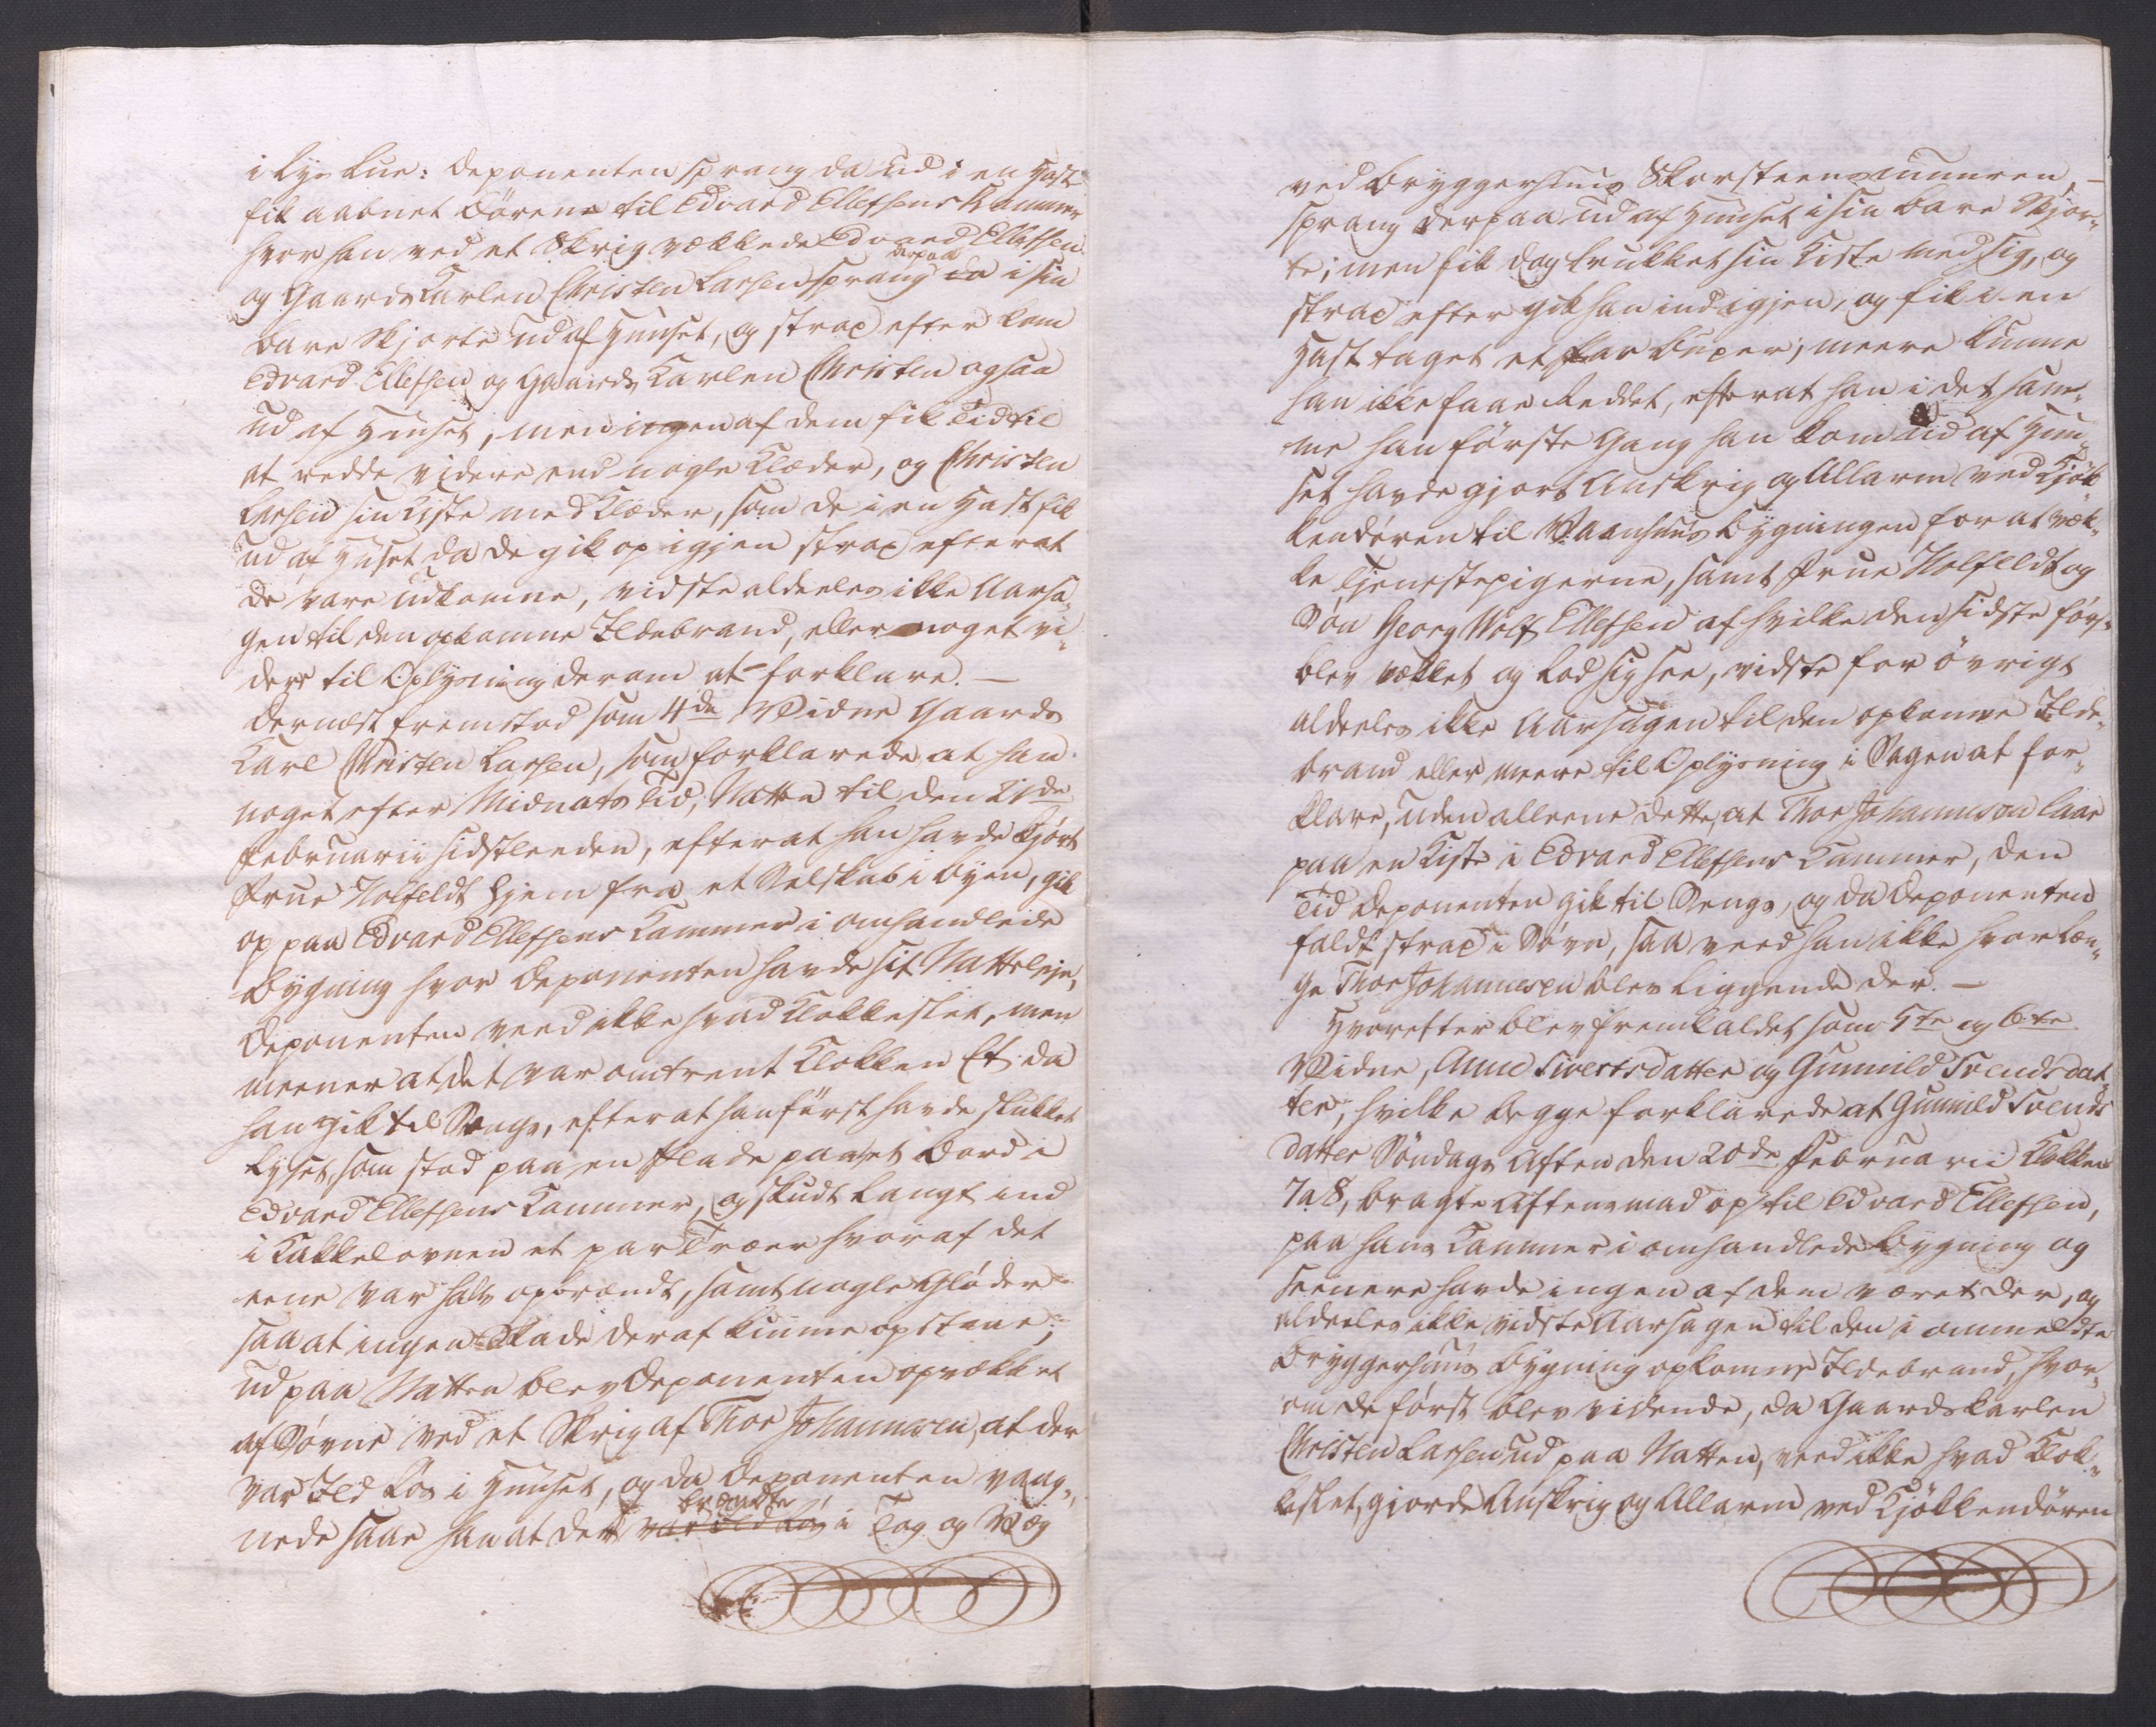 i lys Lue: Deponenten sprang da ud i en Hast
fik aabnet Dörene til Edvard Ellefsens Kammer
hvor han ved et Skrig vækkede Edvard Ellefsen
og Gaards Karlen Christen Larsen sprang derpaa da i sin
bare Skjorte ud af Huuset, og strax efter kom
Edvard Ellefsen og Gaards Karlen Christen ogsaa
ud af Huuset, men ingen af dem fik Tid til
at redde videre end nogle Klæder, og Christen
Larsen sin Kiste med Klæder, som de i en Hast fik
ud af Huset da de gik op igjen strax efterat
de vare udkomne, vidste aldeeles ikke Aarsa„
gen til den opkomne Ildebrand, eller noget vi„
dere til Oplysning derom at forklare. —
Dernæst fremstod som 4de Vidne Gaards
Karl Christen Larsen, som forklarede at han
noget efter Midnats Tid, Natten til den 21de
Februarii sidstleeden, efterat han havde kjört
Frue Holfeldt hjem fra et Selskab i Byen, gik
op paa Edvard Ellefsens Kammer i omhandlede
Bygning hvor Deponenten havde sit Natteleje,
Deponenten veed ikke hvad Klokkeslet, men
meener at det var omtrent Klokken Et da
han gik til Sengs, efterat han först havde slukket
Lyset, som stod paa en Plade paa et Bord i
Edvard Ellefsens Kammer, og skudt langt ind
i Kakkelovnen et par Træer hvoraf det
eene var halv opbrændt, samt nogle Glöder
saa at ingen Skade deraf kunne opstaae;
ud paa Natten blev Deponenten opvækket
af Sövne ved et Skrig af Thor Johannesen, at der
var Ild Lös i Huuset, og da Deponenten vaag„
nede saae han at det brændte var Ild Lös i Tag og Væg
ved Bryggerhuus Skorsteensmuuren, —
sprang derpaa ud af Huuset i sin bare Skjor„
te; men fik dog trukket sin Kiste med sig, og
strax efter gik han ind igjen, og fik i en
Hast taget et Par Buxer; meere kunne
han ikke faae Reddet, efterat han i det sam„
me han förste Gang han kom ud af Huu„
set havde gjort Anskrig og Allarm ved Kjök„
kendören til Vaanhuus Bygningen for at væk„
ke Tjenestepigerne, samt Frue Holfeldt og
Sön Georg Wolf Ellefsen af hvilke den sidste förs„
blev vækket og lod sig see, vidste for övrigt
aldeeles ikke Aarsagen til den opkomne Ilde„
brand eller meere til Oplysning i Sagen at for„
klare, uden alleene dette, at Thor Johannesen laae
paa en Kiste i Edvard Ellefsens Kammer, den
Tid Deponenten gik til Sengs, og da Deponenten
faldt strax i Sövn, saa veed han ikke hvorlæn„
ge Thor Johannesen blev liggende der. —
Hvorefter blev fremkaldet som 5te og 6te
Vidne, Anne Siversdatter og Gunnild Svendsdat„
ter, hvilke begge forklarede at Gunnild Svends
datter Söndags Aften den 20de Februarii Klokken
7 a 8, bragte Aftensmad op til Edvard Ellefsen,
paa hans Kammer i omhandlede Bygning og
seenere havde ingen af dem været der, og
aldeeles ikke vidste Aarsagen til den i ommeldte
Bryggerhuus Bygning opkomne Ildebrand, hvor„
om de först blev vidende, da Gaardskarlen
Christen Larsen ud paa Natten, veed ikke hvad Klok„
keslet, gjorde Anskrig og Allarm ved Kjökkendören